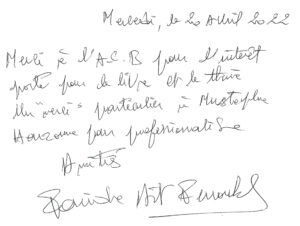 Mercredi, le 20 Avril 2022
Merci à l'A.C.B pour l'intérêt
porté pour ce livre et le thème
Un "merci" particulier à Mustapha
pour professionnalisme
Amitiés
Aït